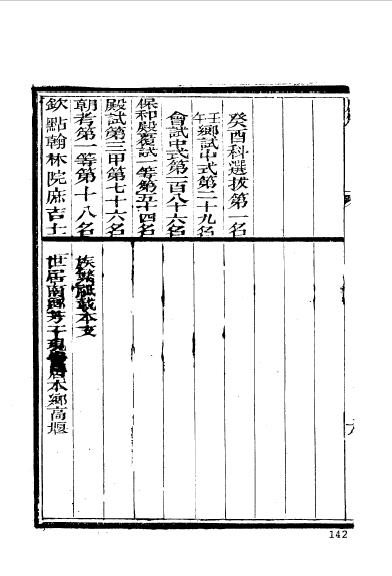 癸酉科選拔第一名
壬午鄉試中式第二十九名
會試中式第一百八十六名
保和殿覆試一等第五十四名
殿試第三甲第七十六名
朝考第一等第十八名
欽點翰林院庶吉士
族繁祗載本支
世居南鄉 現 居本鄉高堰
142